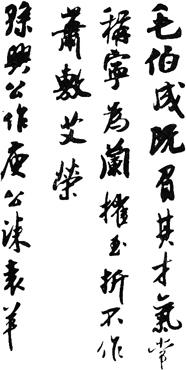 毛伯成既負其才氣常
稱寧為蘭摧玉折不作
蕭敷艾榮
孫興公作庾公誄袁羊